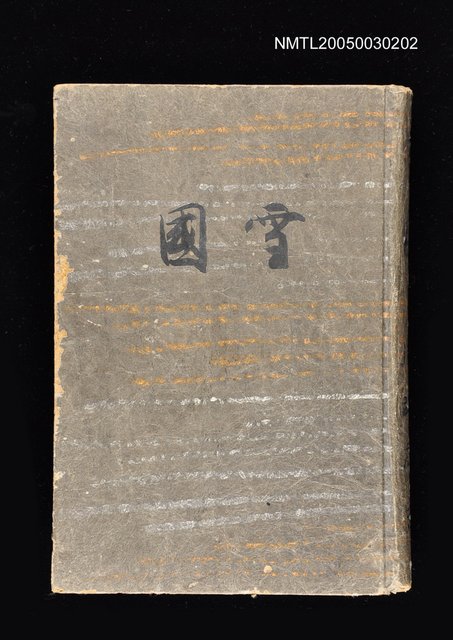 NMTL20050030202
雪國